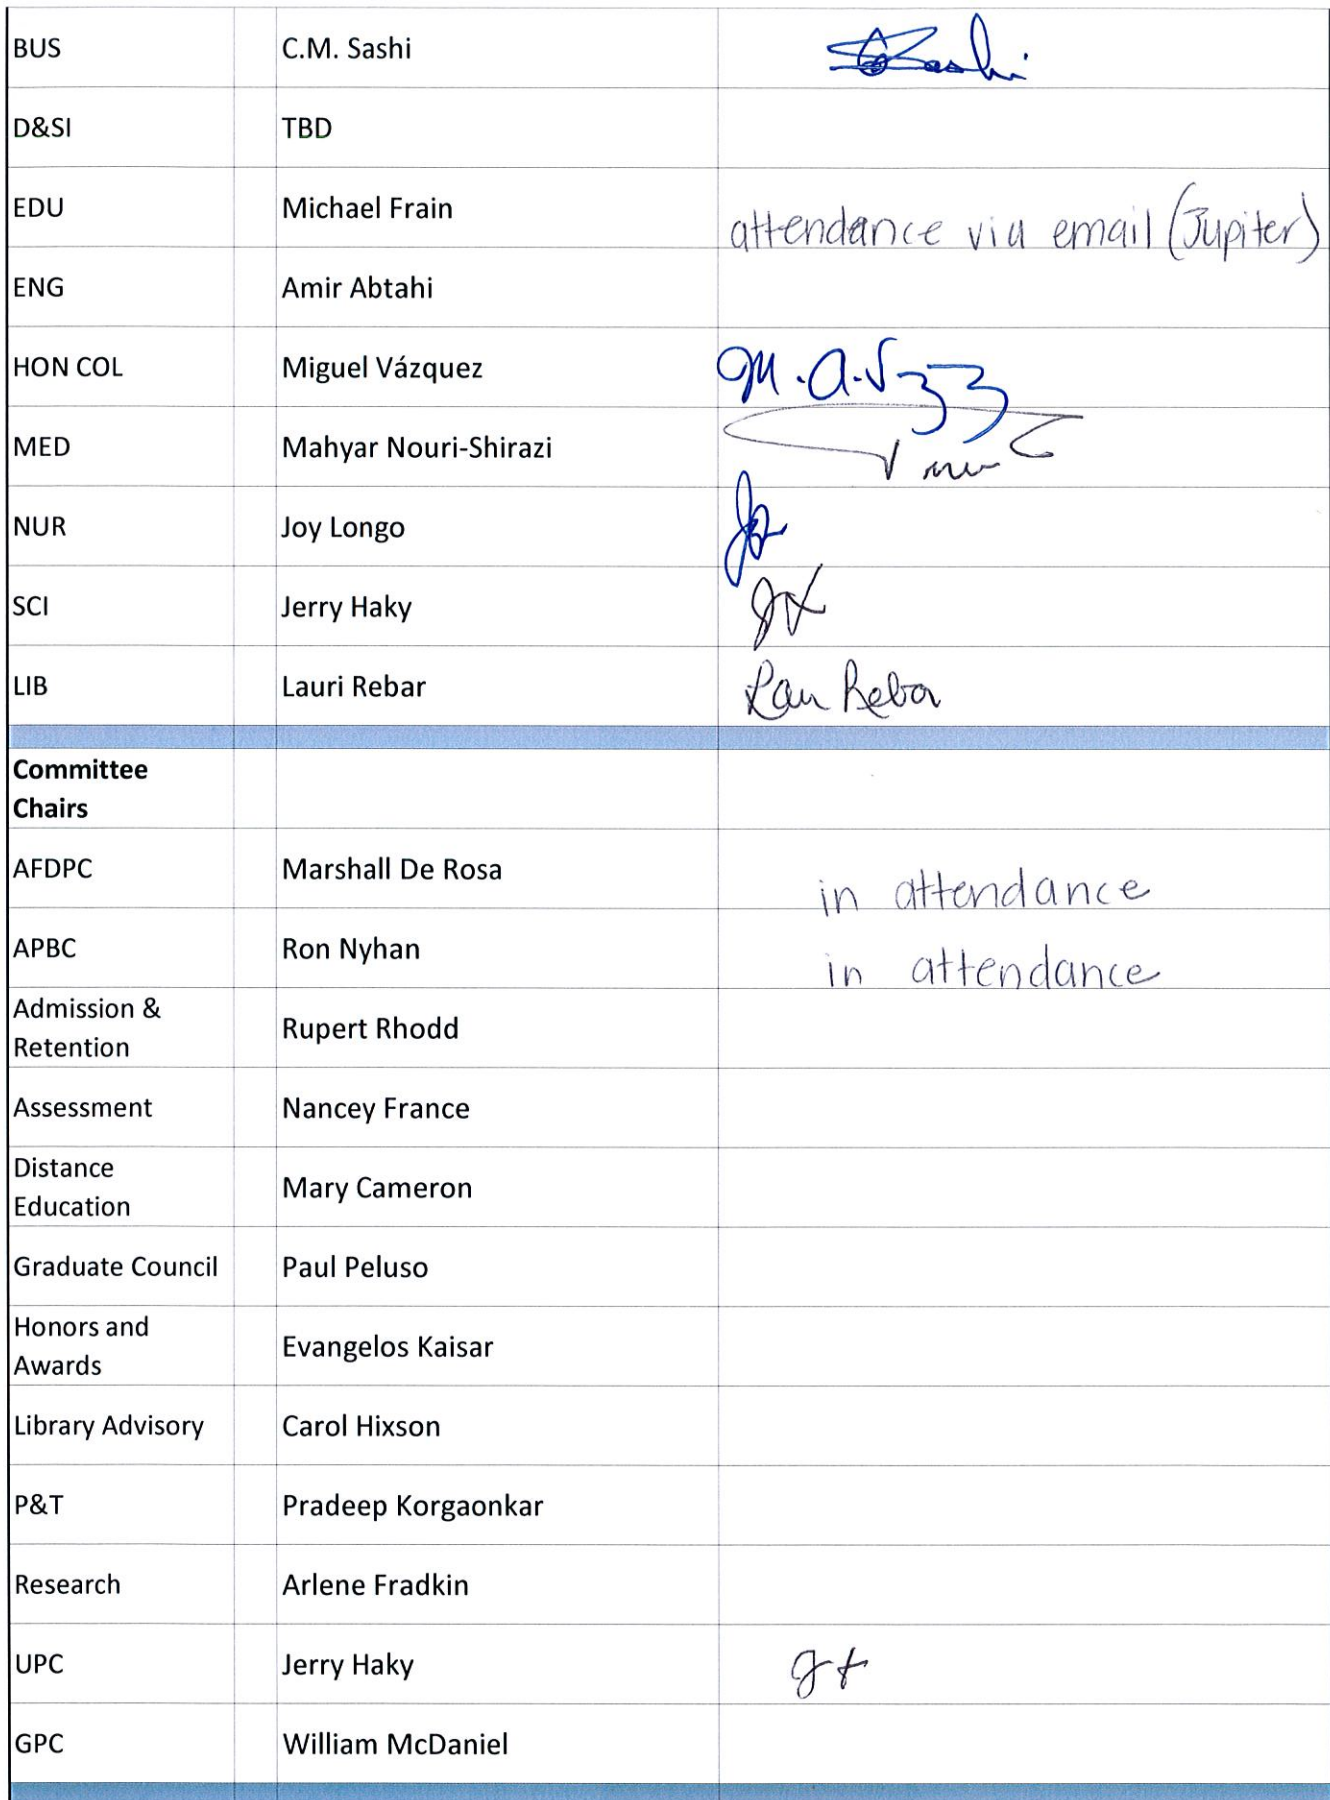 BUS C.M. Sashi Sashi
D&SI TBD
EDU Michael Frain attendance via email (Jupiter)
ENG Amir Abtahi
HON COL Miguel Vázquez
MED Mahyar Nouri-Shirazi
NUR Joy Longo
SCI Jerry Haky
LIB Lauri Rebar
Committee
Chairs
AFDPC Marshall De Rosa in attendance
APBC Ron Nyhan in attendance
Admission &
Retention Rupert Rhodd
Assessment Nancey France
Distance
Education Mary Cameron
Graduate Council Paul Peluso
Honors and
Awards Evangelos Kaisar
Library Advisory Carol Hixson
P&T Pradeep Korgaonkar
Research Arlene Fradkin
UPC Jerry Haky
GPC William McDaniel